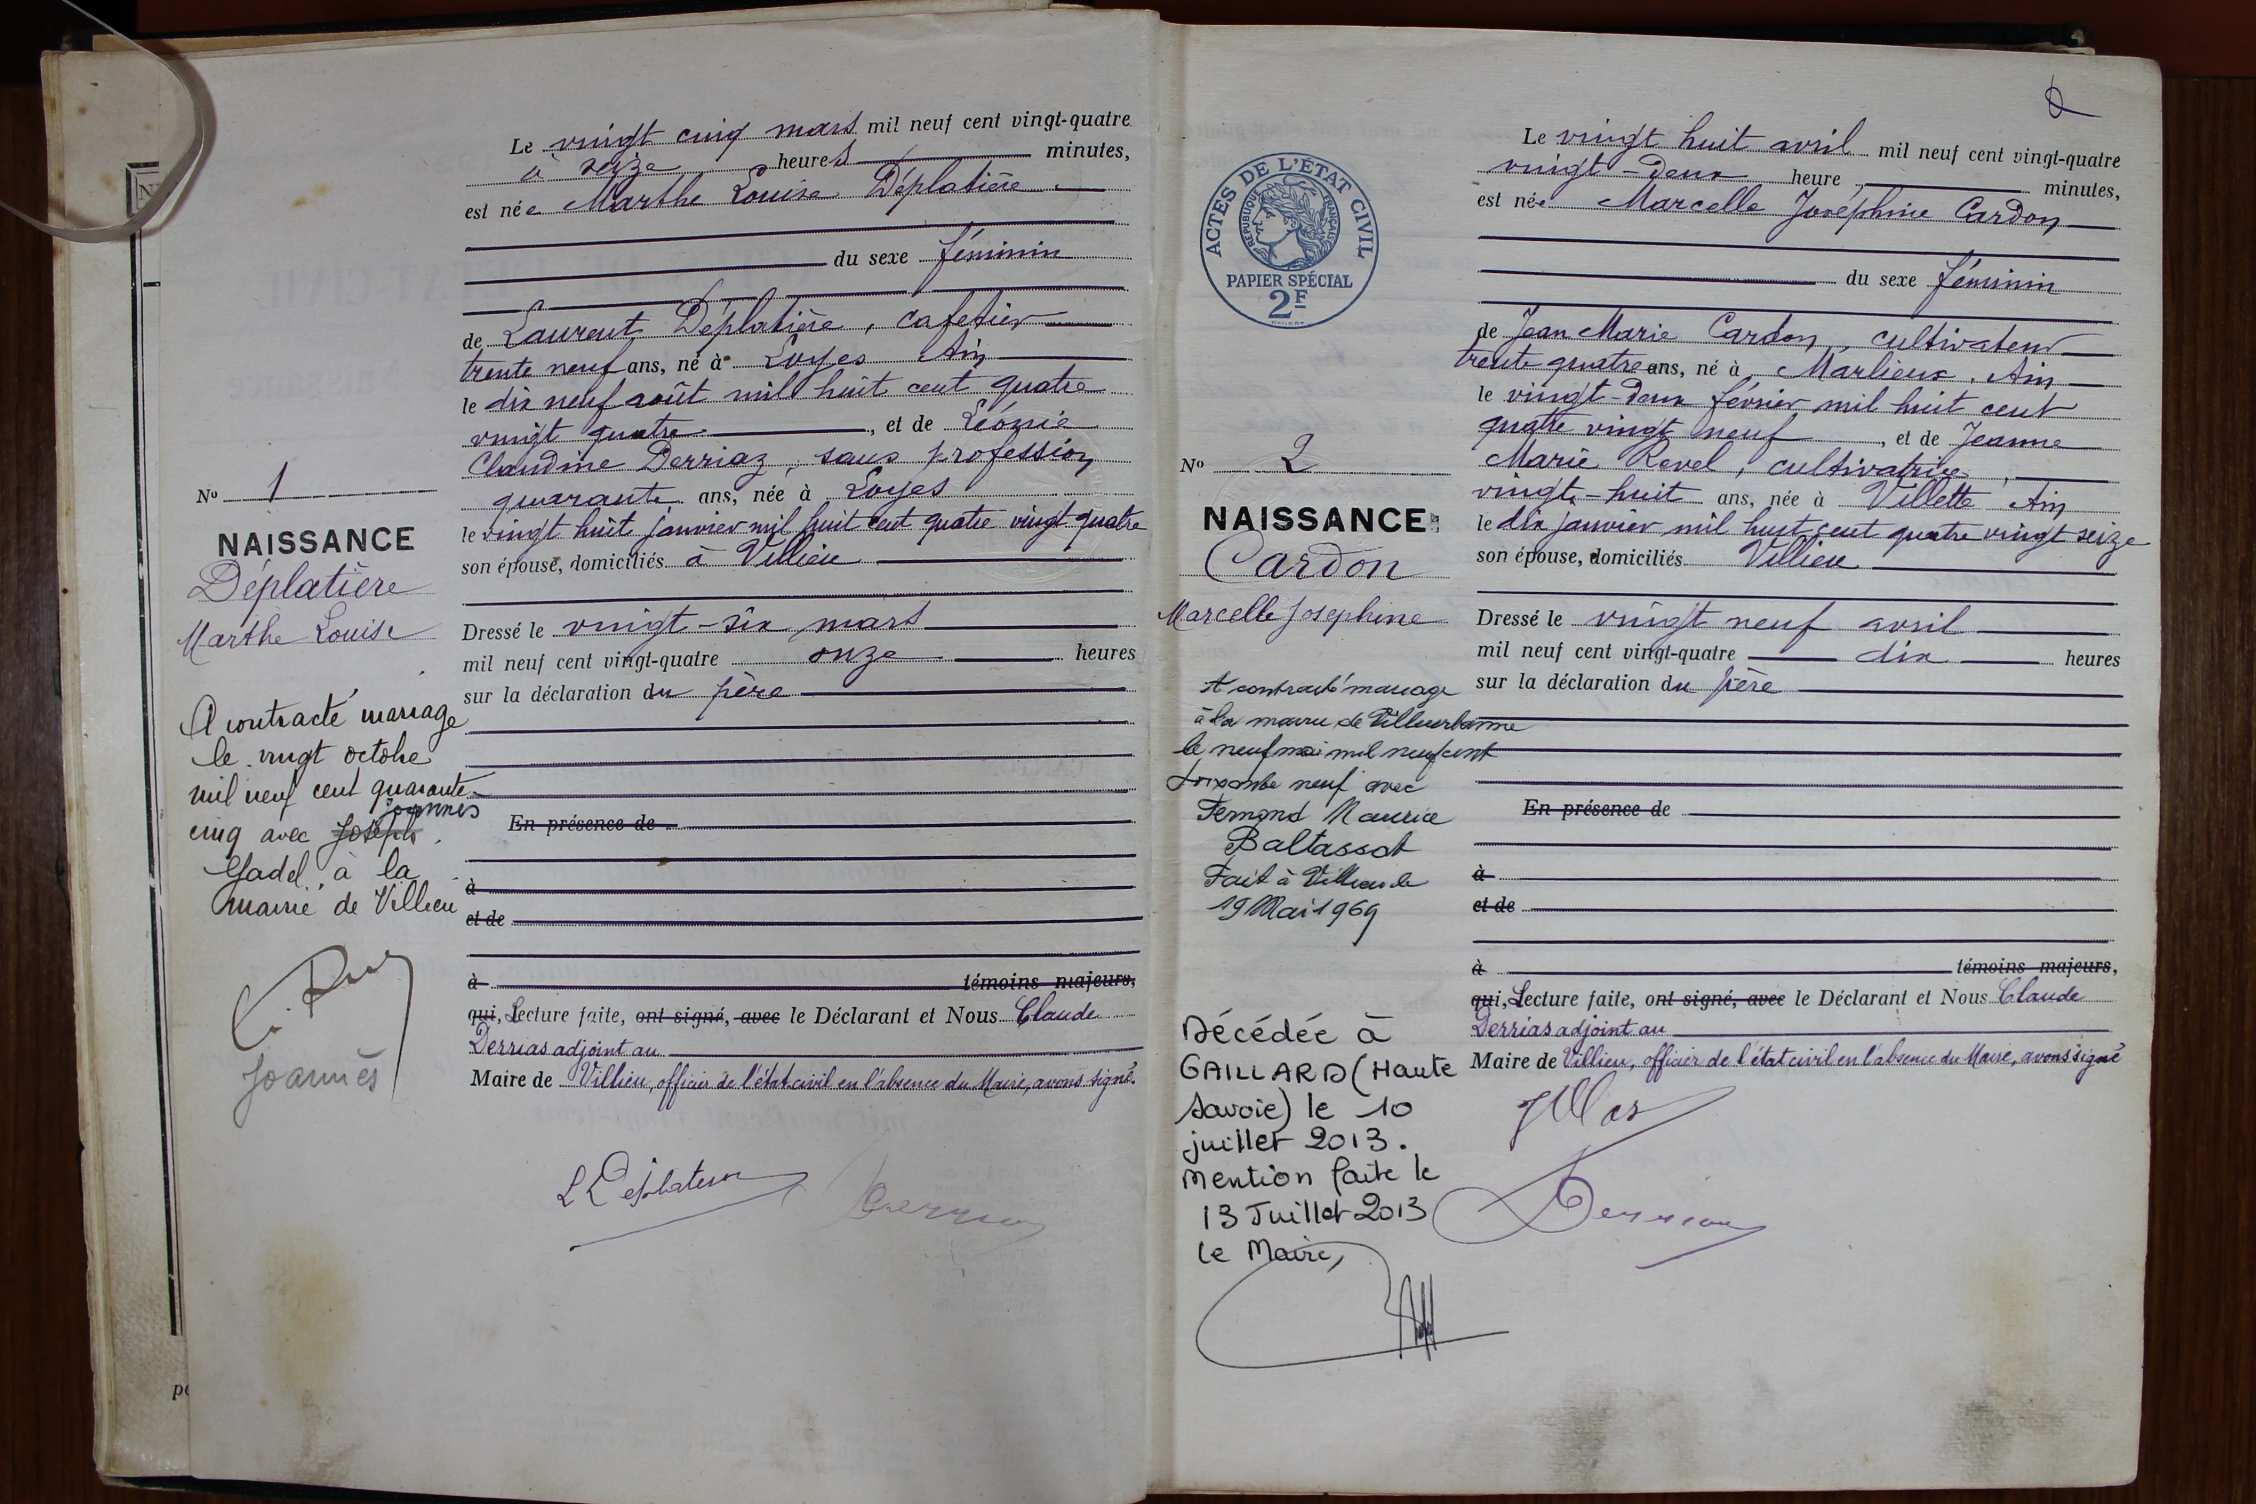 Le vingt cinq mars mil neuf cent vingt-quatre
à seize heures minutes,
est née Marthe Louise Déplatière
du sexe féminin
de Laurent Déplatière, cafetier
trente neuf ans, né à Loyes Ain
le dix neuf août mil huit cent quatre
vingt quatre, et de Léonie
Claudine Derriaz, sans profession
quarante ans, née à Loyes
le vingt huit janvier mil huit cent quatre vingt quatre
son épouse, domiciliés à Villieu
Dressé le vingt-six mars
mil neuf cent vingt-quatre onze heures
sur la déclaration du père
En présence de
à
et de
à témoins majeurs,
qui, Lecture faite, ont signé, avec le Déclarant et Nous Claude
Derrias adjoint au
Maire de Villieu, officier de l'état civil en l'absence du Maire, avons signé.
L Déplatière
Derrias
No 1
NAISSANCE
Déplatière
Marthe Louise
A contracté mariage
le vingt octobre
mil neuf cent quarante-
joannès
cinq avec Joseph
Gadel à la
mairie de Villieu
Joannès
2
ACTES DE L'ÉTAT CIVIL
RÉPUBLIQUE FRANÇAISE
PAPIER SPÉCIAL
2F
No 2
NAISSANCE
Cardon
Marcelle Josephine
A contracté mariage
à la mairie de Villeurbanne
le neuf mai mil neuf cent
soixante neuf avec
Fernand Maurice
Baltassat
Fait à Villieu le
19 Mai 1969
Décédée à
GAILLARD (Haute
Savoie) le 10
juillet 2013.
Mention faite le
13 Juillet 2013
Le Maire,
Le vingt huit avril mil neuf cent vingt-quatre
vingt-deux heure minutes,
est née Marcelle Joséphine Cardon
du sexe féminin
de Jean Marie Cardon, cultivateur
trente quatre ans, né à Marlieux, Ain
le vingt-deux février mil huit cent
quatre vingt neuf, et de Jeanne
Marie Revel, cultivatrice,
vingt-huit ans, née à Villette Ain
le dix janvier mil huit cent quatre vingt seize
son épouse, domiciliés Villieu
Dressé le vingt neuf avril
mil neuf cent vingt-quatre dix heures
sur la déclaration du père
En présence de
à
et de
à témoins majeurs,
qui, Lecture faite, ont signé, avec le Déclarant et Nous Claude
Derrias adjoint au
Maire de Villieu, officier de l'état civil en l'absence du Maire, avons signé
Derrias